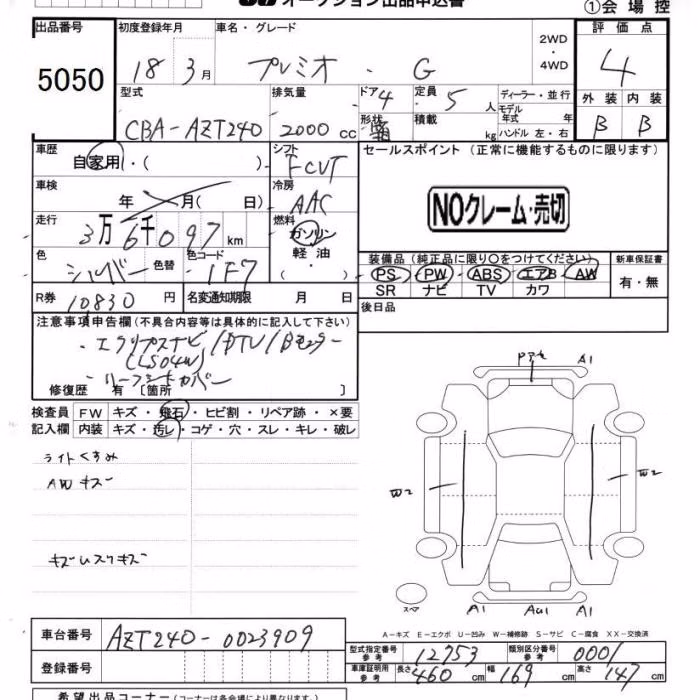 オークション出品申込書
①会場控
出品番号 初度登録年月 車名・グレード 評価点
5050 18 3月 プレミオ・G 2WD・4WD 4
型式 排気量 ドア 定員 ディーラー・並行 外装 内装
CBA-AZT240 2000cc 4 5人 モデル年式 年 B B
形状 積載 kg ハンドル 左・右
車歴 シフト セールスポイント (正常に機能するものに限ります)
自家用・( ) FCVT
車検 冷房
年 月( 日) AAC NOクレーム・売切
走行 燃料
3万6千097km ガソリン
軽油
・( )
色 色替 色コード 装備品 (純正品に限り〇をつけてください) 新車保証書
シルバー 1F7 PS PW ABS エアB AW 有・無
SR ナビ TV カワ
R券 10830円 名変通知期限 月 日 後日品
注意事項申告欄 (不具合内容等は具体的に記入して下さい)
・エクリプスナビ/DTV/Bモニター
・リーフシートカバー
修復歴 有 [箇所 ]
検査員 FW キズ・飛石・ヒビ割・リペア跡・×要
記入欄 内装 キズ・汚レ・コゲ・穴・スレ・キレ・破レ
Pアセ A1
ライトくすみ
AWキズ
W2 W2
キズ・スリキズ
スペア A1 AU1 A1
A-キズ E-エクボ U-凹み W-補修跡 S-サビ C-腐食 XX-交換済
車台番号 AZT240-0023909
型式指定番号 参考 12753 類別区分番号 参考 0001
登録番号 車庫証明用 参考 長さ 460cm 幅 169cm 高さ 147cm
希望出品コーナー (コーナーは各会場により異なります。)